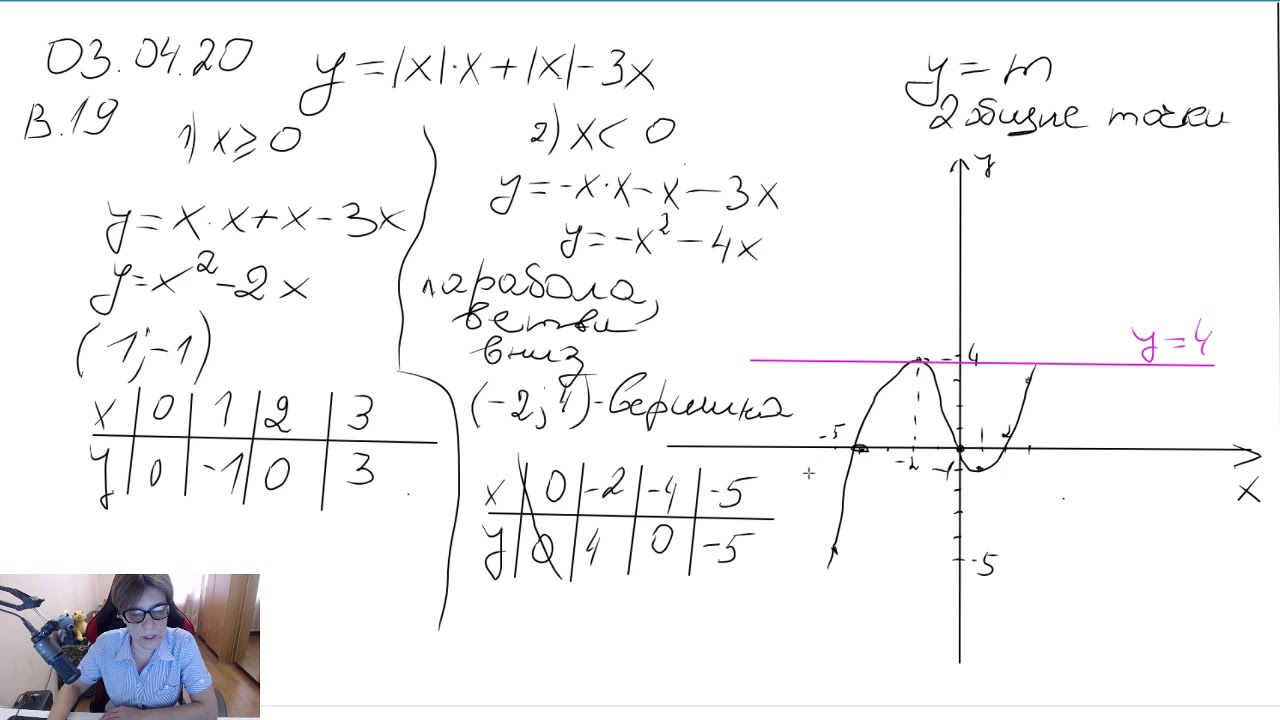 03.04.20
В.19
y = |x|·x + |x| - 3x
1) x ≥ 0
y = x·x + x - 3x
y = x² - 2x
(1; -1)
x | 0 | 1 | 2 | 3
y | 0 | -1 | 0 | 3
2) x < 0
y = -x·x - x - 3x
y = -x² - 4x
парабола,
ветви
вниз
(-2; 4) - вершина
x | 0 | -2 | -4 | -5
y | 0 | 4 | 0 | -5
y = m
2 общие точки
y
y = 4
4
-5
-2
-1
1
2
x
-5